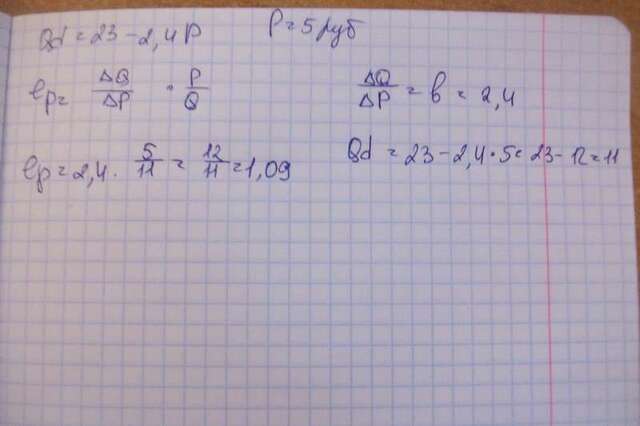 Qd = 23 - 2,4P P = 5 руб
ep = ΔQ/ΔP · P/Q ΔQ/ΔP = b = 2,4
ep = 2,4 · 5/11 = 12/11 = 1,09 Qd = 23 - 2,4 · 5 = 23 - 12 = 11